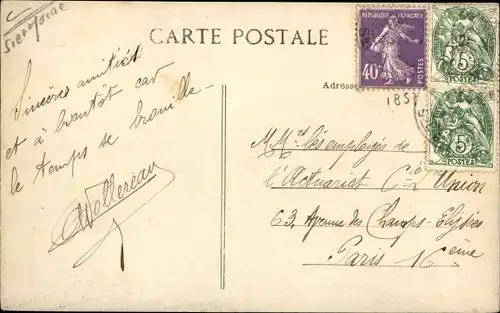 CARTE POSTALE
RÉPUBLIQUE FRANÇAISE
40c
POSTES
5
POSTES
5
POSTES
Adresse
185
Sincères amitiés
et à bientôt car
le temps se brouille —
Wollereau
MMrs les employés de
l'Actuariat Cie L'Union
63, Avenue des Champs-Elysées
Paris 16ème